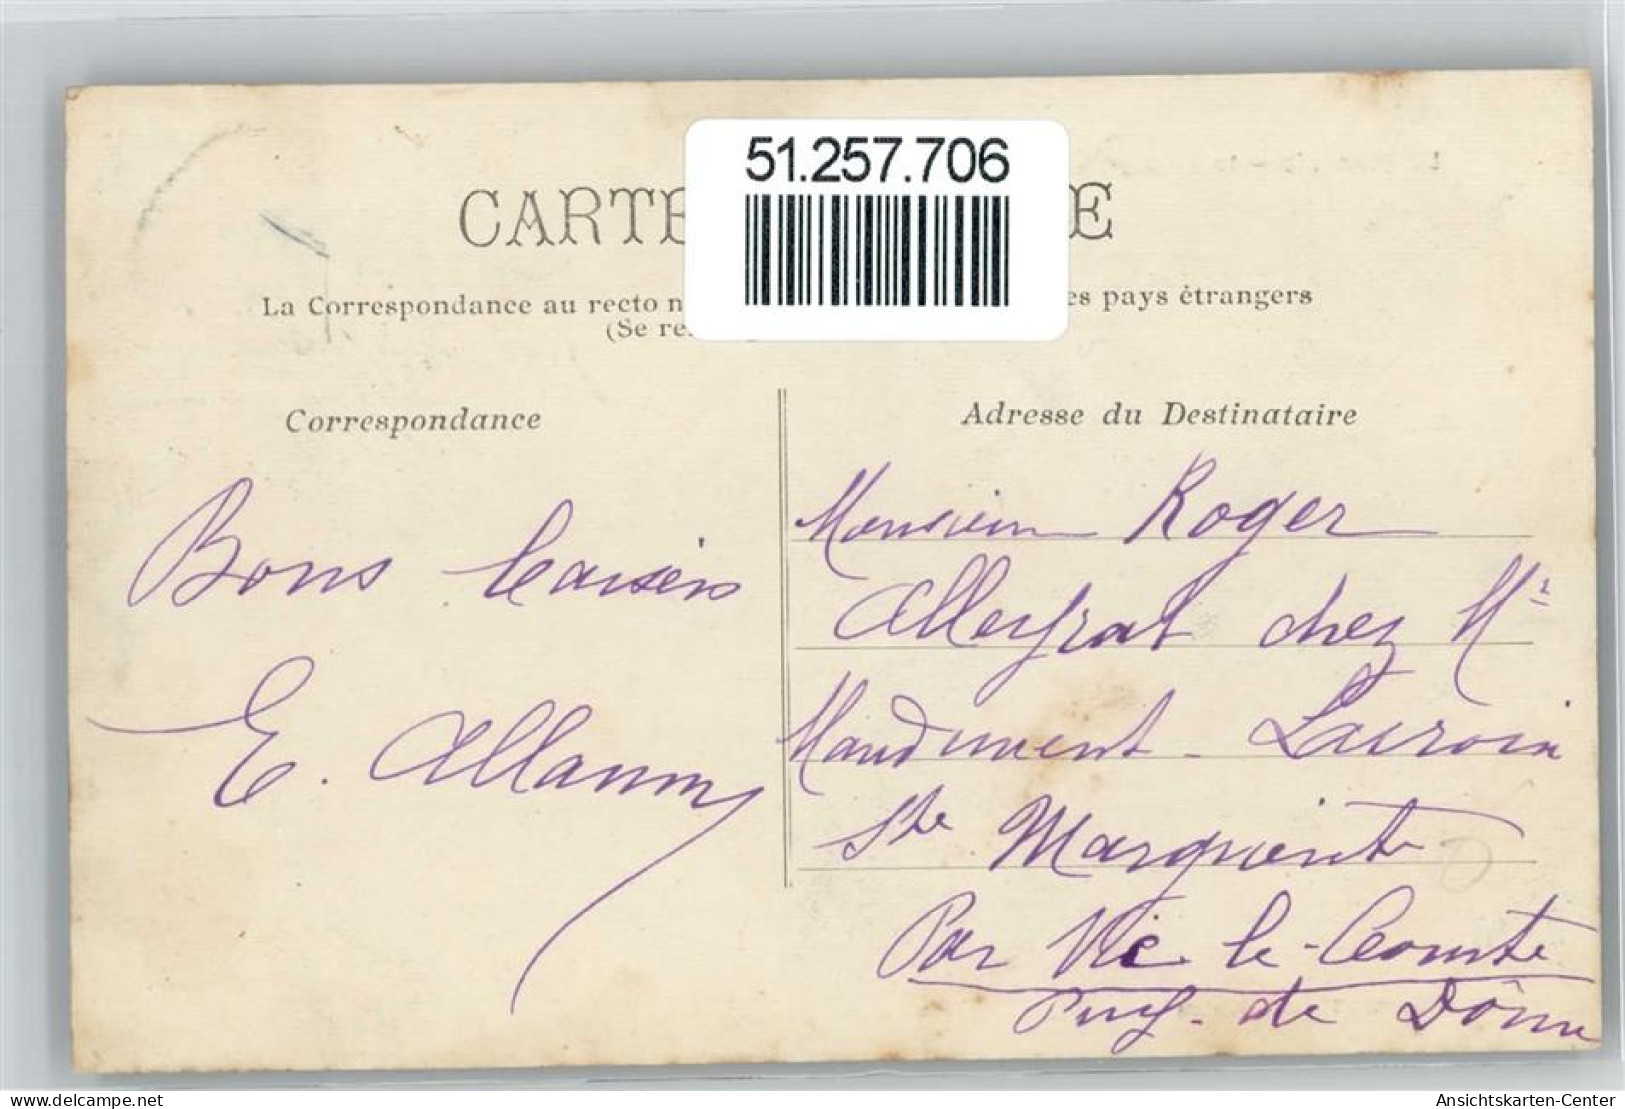 51.257.706
CARTE E
La Correspondance au recto n es pays étrangers
(Se re
Correspondance
Adresse du Destinataire
Bons baisers
E. Allanm
Monsieur Roger
Alleyrat chez Mr
Mandument - Lacroix
Ste Marguerite
Par Vic le-Comte
Puy-de Dôme
www.delcampe.net
Ansichtskarten-Center